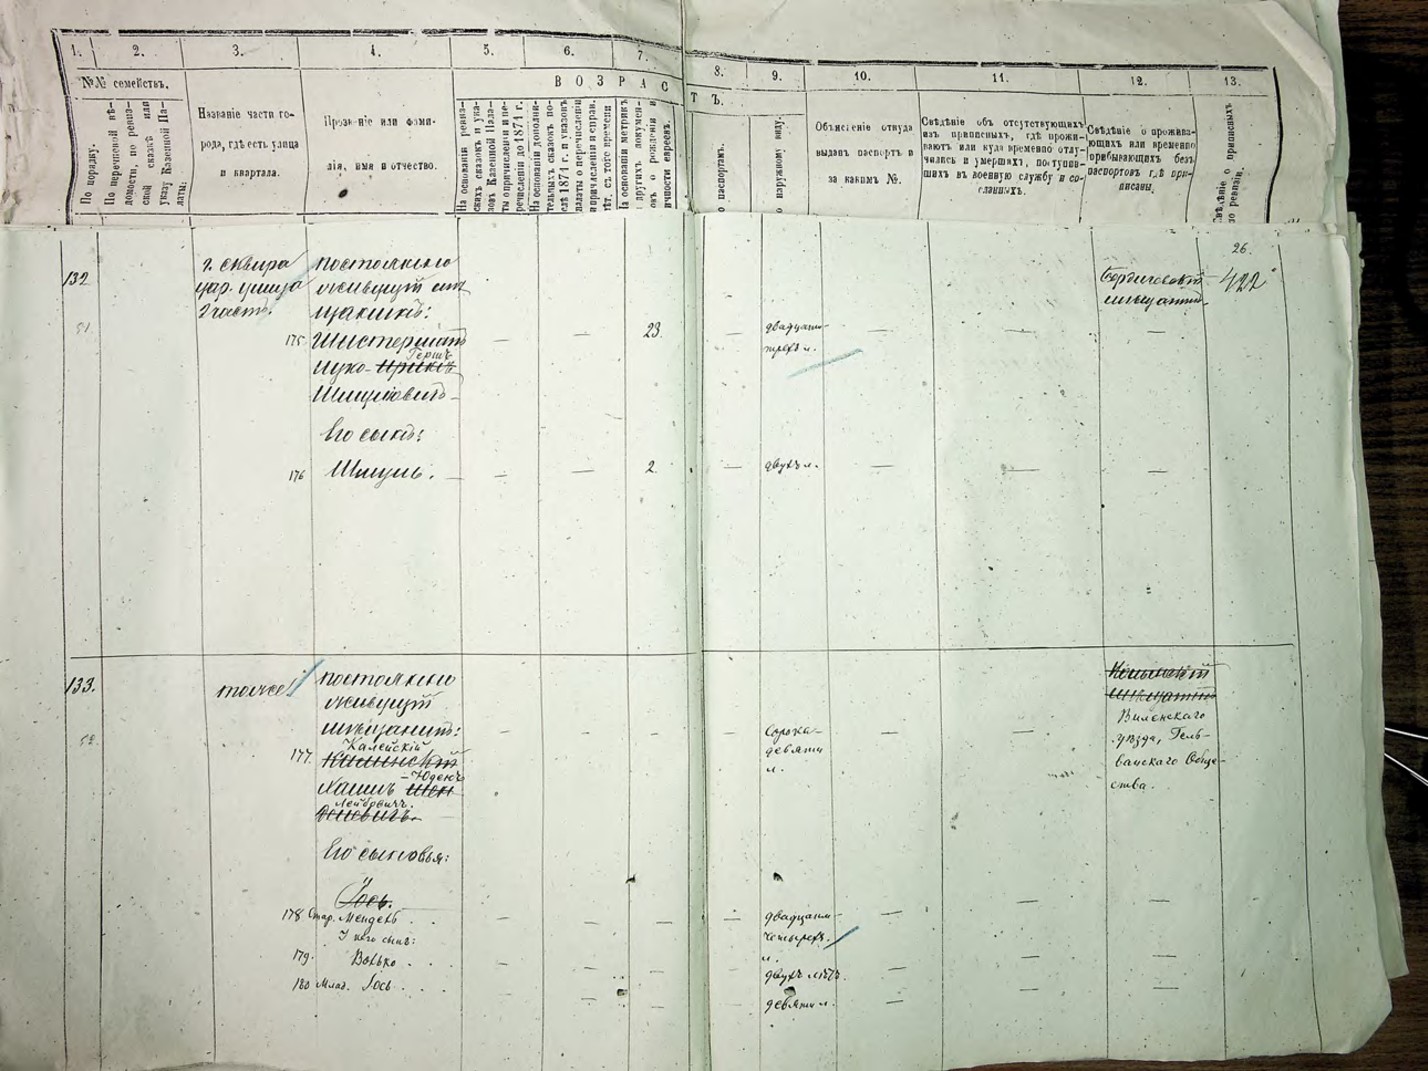 1. 2. 3. 4. 5. 6. 7. 8. 9. 10. 11. 12. 13.
№№ семействъ.
ВОЗРАСТЪ.
По порядку.
По перечневой вѣ-
домости, по ревиз-
ской сказкѣ или
указу Казенной Па-
латы:
Названіе части го-
рода, гдѣ есть улица
и квартала.
Прозваніе или фами-
лія, имя и отчество.
На основаніи ревиз-
скихъ сказокъ и ука-
зовъ Казенной Пала-
ты о причисленіи и пе-
речисленіи до 1874 г.
На основаніи дополни-
тельныхъ сказокъ по-
слѣ 1874 г. и указовъ
палаты о перечисленіи
и причисленіи и справ.
лѣт. съ того времени
На основаніи метрикъ
и другихъ докумен-
товъ о рожденіи и
личности евреевъ.
По паспортамъ.
По наружному виду.
Объясненіе откуда
выданъ паспортъ и
за какимъ №.
Свѣдѣніе объ отсутствующихъ
изъ приписныхъ, гдѣ прожи-
ваютъ или куда временно отлу-
чились и умершихъ, поступив-
шихъ въ военную службу и со-
сланныхъ.
Свѣдѣніе о прожива-
ющихъ или временно
прибывающихъ безъ
паспортовъ гдѣ при-
писаны.
Свѣдѣніе о приписныхъ
по ревизіи.
26.
132
г. Сквира
цар. улица
2 часть.
постоянно
живущій мѣ
щанинъ:
Бердичевскій
мѣщанинъ.
422
51
175
Шистерматъ
Гершъ
Нухо-
Шмулевичъ
— — 23. —
двадцати-
трехъ л.
— — —
Его сынъ:
176 Шмуль. — — — 2. — двухъ л. — — —
133.
тоже
постоянно
живущій
мѣщанинъ:
52.
177.
Калейскій
Каминскій
-Юдень
Хаимъ
Лейбовичъ.
— — — — Сорока-
девяти
л.
— — —
мѣщанинъ
Виленскаго
уѣзда, Гель-
ванскаго Обще-
ства.
Его сыновья:
Іось.
178 Стар. Мендель . . — — — — двадцати-
четырехъ.
л.
— — —
У него сынъ:
179. Волько . . — — — двухъ лѣтъ. — — —
180 Млад. Іось . . . — — — девяти л. — — —